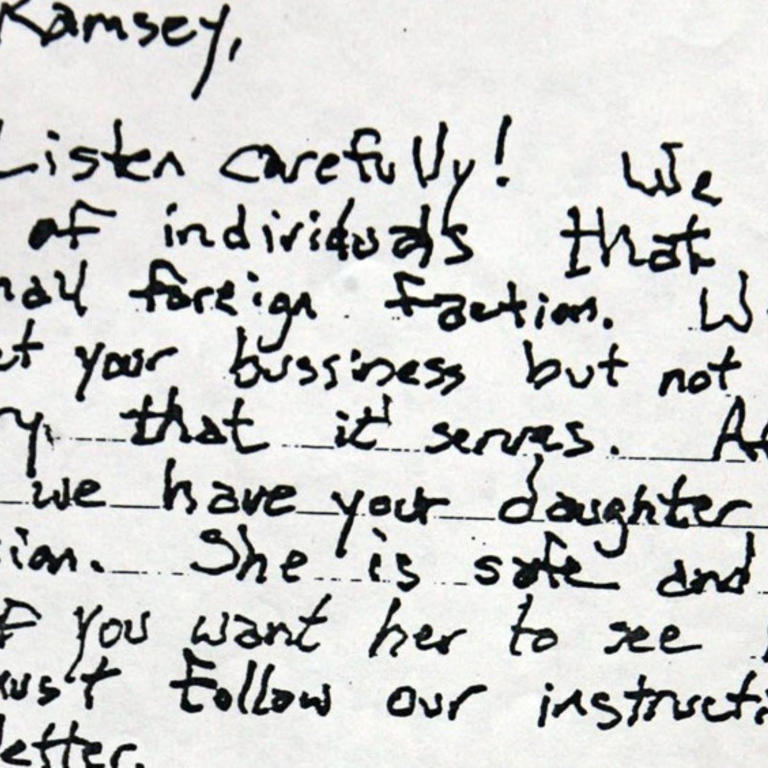 Ramsey,
Listen carefully! We
of individuals that
foreign faction. W
your bussiness but not
that it serves. At
we have your daughter
She is safe and
you want her to see
follow our instructi
letter.